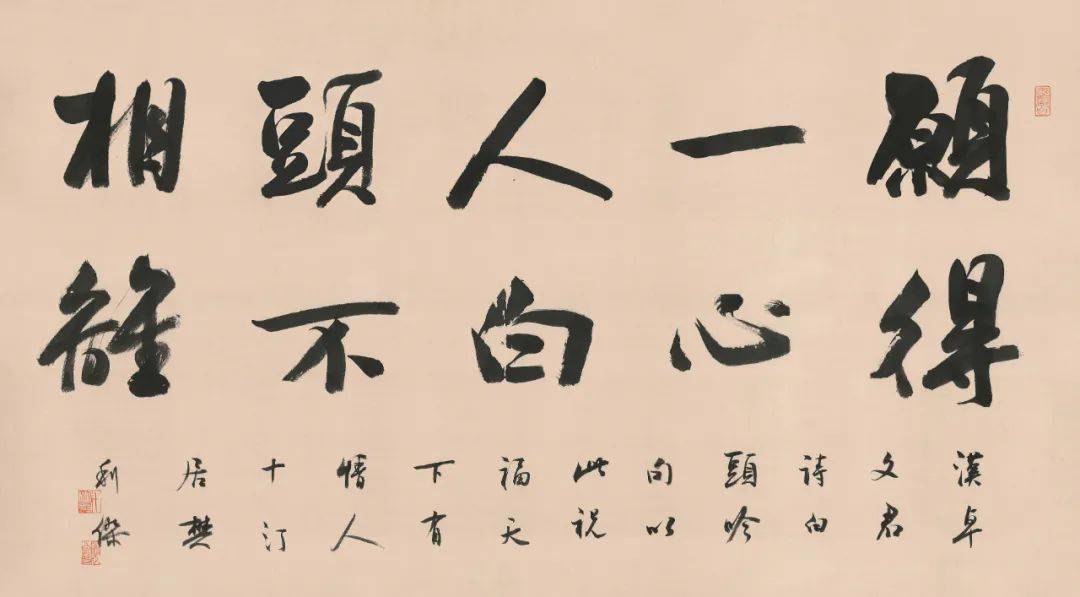 願得
一心
人白
頭不
相離
漢卓
文君
詩白
頭吟
句以
此祝
福天
下有
情人
十汀
居樊
利傑